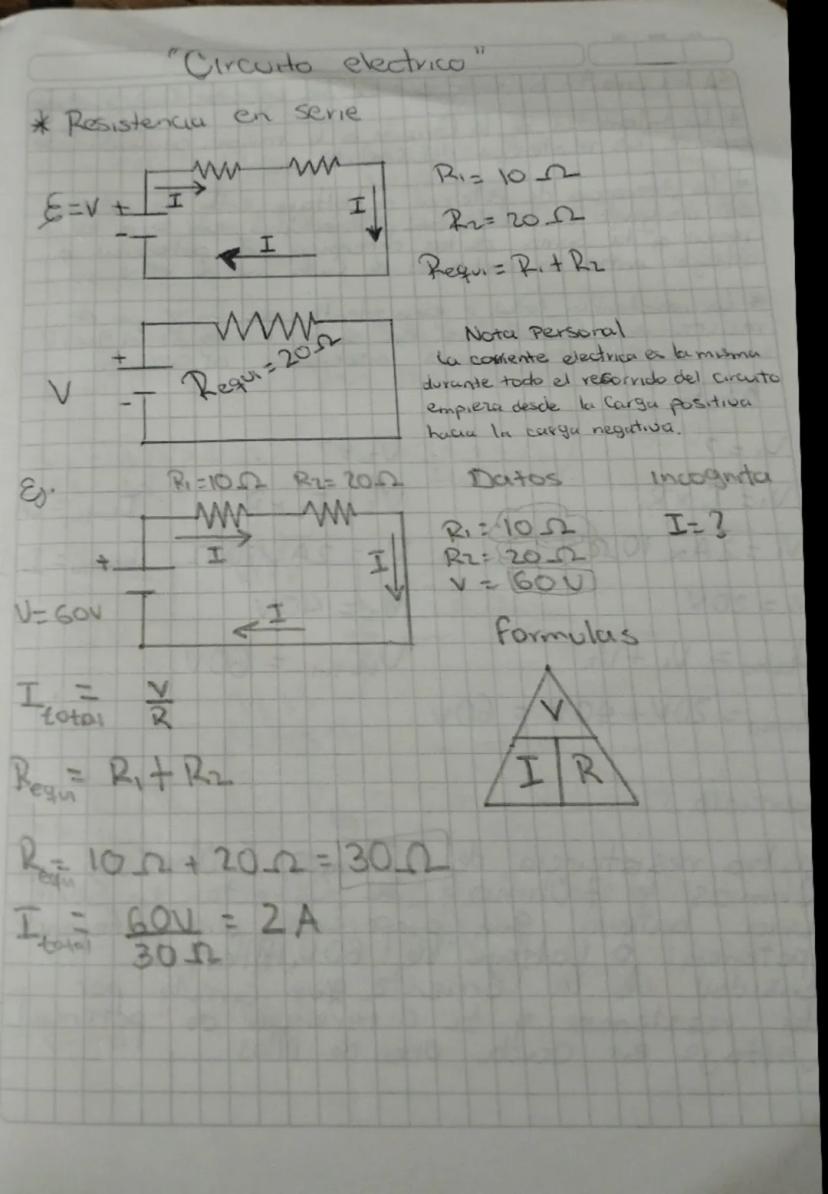 "Circuito electrico"
* Resistencia en serie
R1 = 10 Ω
ℰ=V + I I
R2= 20 Ω
- I
Requi = R1 + R2
Requi = 20Ω
+
V
-
Nota Personal
la corriente electrica es la misma
durante todo el recorrido del circuito
empieza desde la carga positiva
hacia la carga negativa.
Ej. R1=10Ω R2= 20Ω Datos Incognita
R1 = 10 Ω I=?
I
R2= 20 Ω
+ I
V = 60V
V=60V I
formulas
I total = V/R
V
I R
Requi = R1 + R2
Requi = 10Ω + 20Ω = 30Ω
I total = 60V/30Ω = 2 A